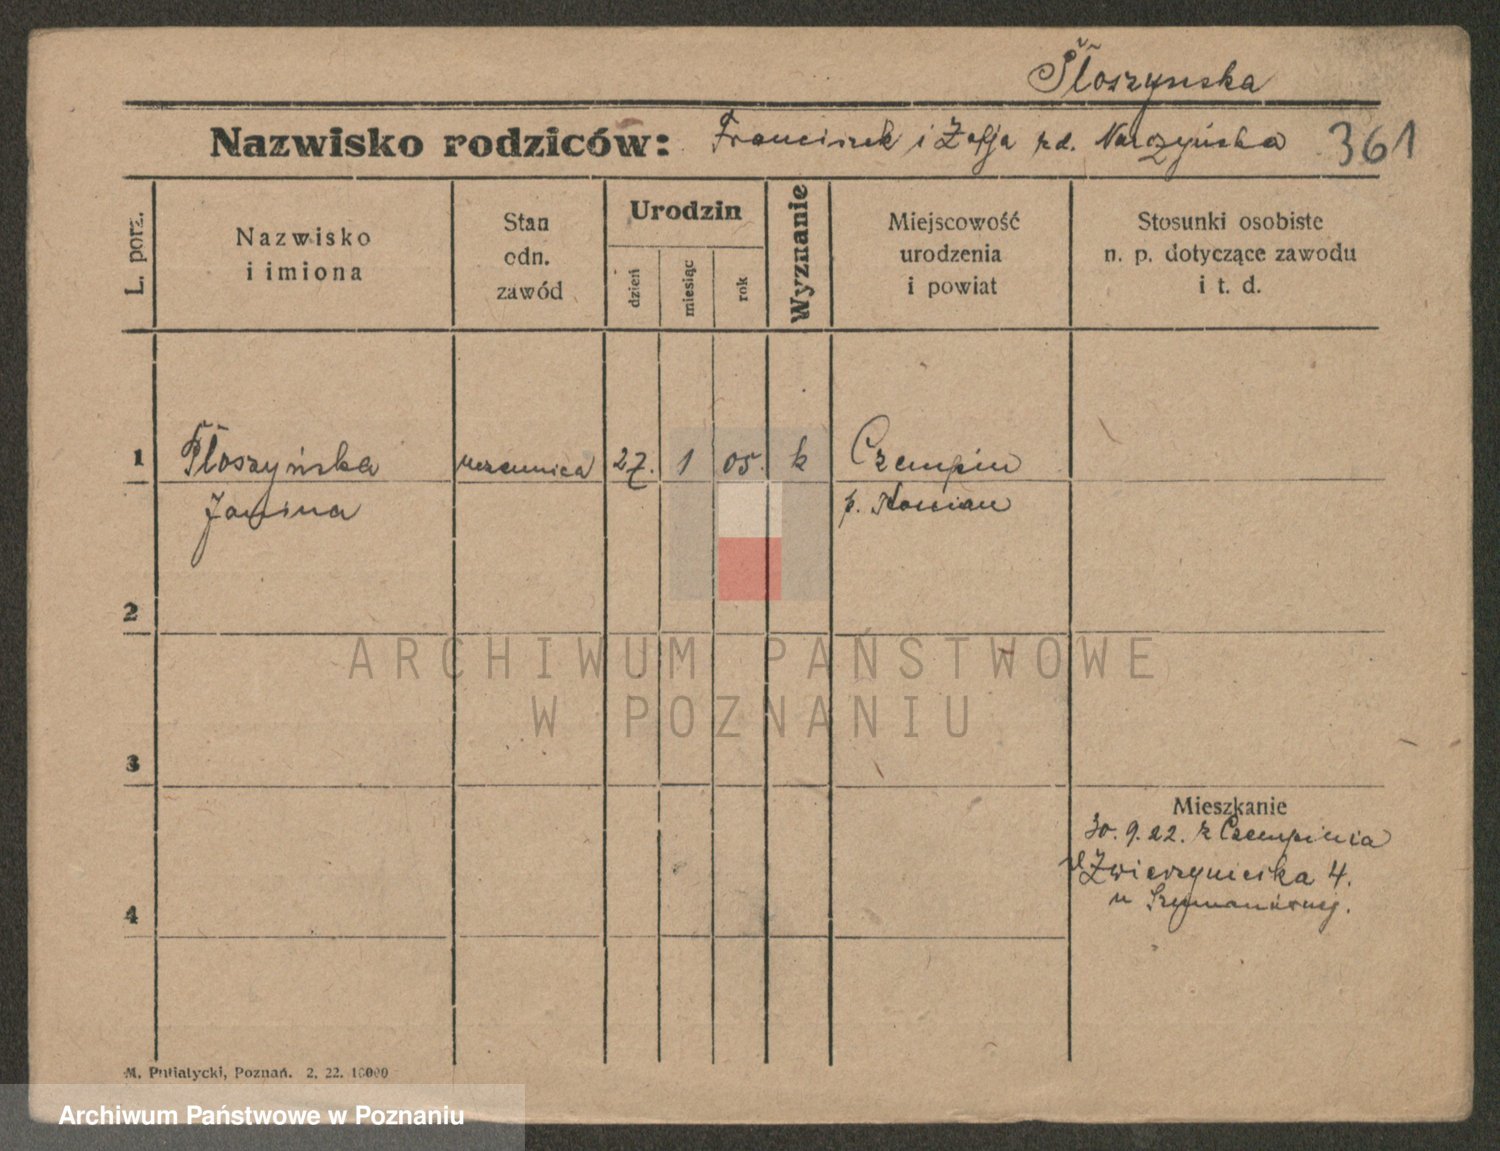 Płoszynska
Nazwisko rodziców: Franciszek i Zofja rd. Narczyńska 361
L. porz.
Nazwisko
i imiona
Stan
odn.
zawód
Urodzin
dzień
miesiąc
rok
Wyznanie
Miejscowość
urodzenia
i powiat
Stosunki osobiste
n. p. dotyczące zawodu
i t. d.
1 Płoszyńska uczennica 27. 1 05. k Czempin
Janina p. Kościan
2
3
Mieszkanie
30. 9. 22. z Czempinia
Zwierzyniecka 4.
4
M. Putiatycki, Poznań. 2. 22. 10000
ARCHIWUM PAŃSTWOWE
W POZNANIU
Archiwum Państwowe w Poznaniu